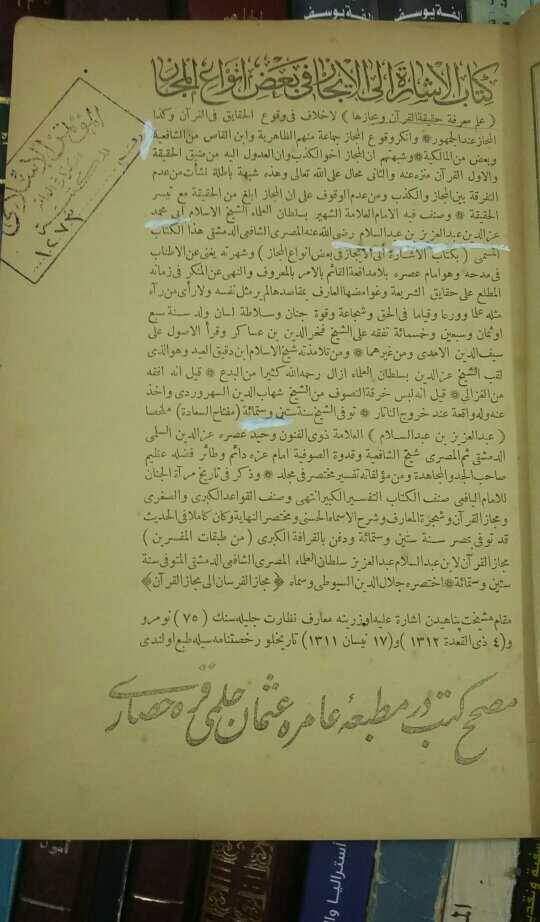 كتاب الاشارة الى الايجاز فى بعض انواع المجاز
( علم معرفة حقيقة القرآن ومجازها ) لاخلاف فى وقوع الحقايق فى القرآن وكذا
المجاز عند الجمهور * وانكر وقوع المجاز جماعة منهم الظاهرية وابن القاص من الشافعية
وبعض من المالكية * وشبهتهم ان المجاز اخو الكذب وان العدول اليه من ضيق الحقيقة
والاول القرآن منزه عنه والثانى محال على الله تعالى وهذه شبهة باطلة نشأت من عدم
التفرقة بين المجاز والكذب ومن عدم الوقوف على ان المجاز ابلغ من الحقيقة مع تيسر
الحقيقة * وصنف فيه الامام العلامة الشهير بسلطان العلماء الشيخ الاسلام ابى محمد
عز الدين عبد العزيز بن عبد السلام رضى الله عنه المصرى الشافعى الدمشقى هذا الكتاب
المسمى ( بكتاب الاشارة الى الايجاز فى بعض انواع المجاز ) وشهرته يغنى عن الاطناب
فى مدحه وهو امام عصره بلا مدافعة القائم بالامر بالمعروف والنهى عن المنكر فى زمانه
المطلع على حقايق الشريعة وغوامضها العارف بمقاصدها لم ير مثل نفسه ولا رأى من رآه
مثله علما وورعا وقياما فى الحق وشجاعة وقوة جنان وسلاطة لسان ولد سنة سبع
او ثمان وسبعين وخمسمائة تفقه على الشيخ فخر الدين بن عساكر وقرأ الاصول على
سيف الدين الآمدى ومن غيرهما * ومن تلامذته شيخ الاسلام ابن دقيق العيد وهو الذى
لقب الشيخ عز الدين بسلطان العلماء ازال رحمه الله كثيرا من البدع * قيل انه افقه
من الغزالى * قيل انه لبس خرقة التصوف من الشيخ شهاب الدين السهروردى واخذ
عنه وله واقعة عند خروج التاتار * توفى الشيخ سنة ستين وستمائة ( مفتاح السعادة ) ملخصا
( عبد العزيز بن عبد السلام ) العلامة ذوى الفنون وحيد عصره عز الدين السلمى
الدمشقى ثم المصرى شيخ الشافعية وقدوة الصوفية امام عزه دائم وطائر فضله عظيم
صاحب الجد والمجاهدة ومن مؤلفاته تفسير مختصر فى مجلد * وذكر فى تاريخ مرآة الجنان
للامام اليافعى صنف الكتاب التفسير الكبير انتهى وصنف القواعد الكبرى والصغرى
ومجاز القرآن وشجرة المعارف وشرح الاسماء الحسنى ومختصر النهاية وكان كاملا فى الحديث
قد توفى بمصر سنة ستين وستمائة ودفن بالقرافة الكبرى ( من طبقات المفسرين )
مجاز القرآن لابن عبد السلام عبد العزيز سلطان العلماء المصرى الشافعى الدمشقى المتوفى سنة
ستين وستمائة * اختصره جلال الدين السيوطى وسماه ( مجاز الفرسان الى مجاز القرآن )
مقام مشيخت پناهيدن اشاره عليه اوزرينه معارف نظارت جليله سنك ( ٧٥ ) نومرو
و ( ٤ ذى القعدة ١٣١٢ ) و ( ١٧ نيسان ١٣١١ ) تاريخلو رخصتنامه سيله طبع اولندى
مصحح كتب در مطبعهٔ عامره عثمان حلمى قره حصارى
١٢٧٣
ألفة يوسف
ألفة يوسف
أستراليا وال